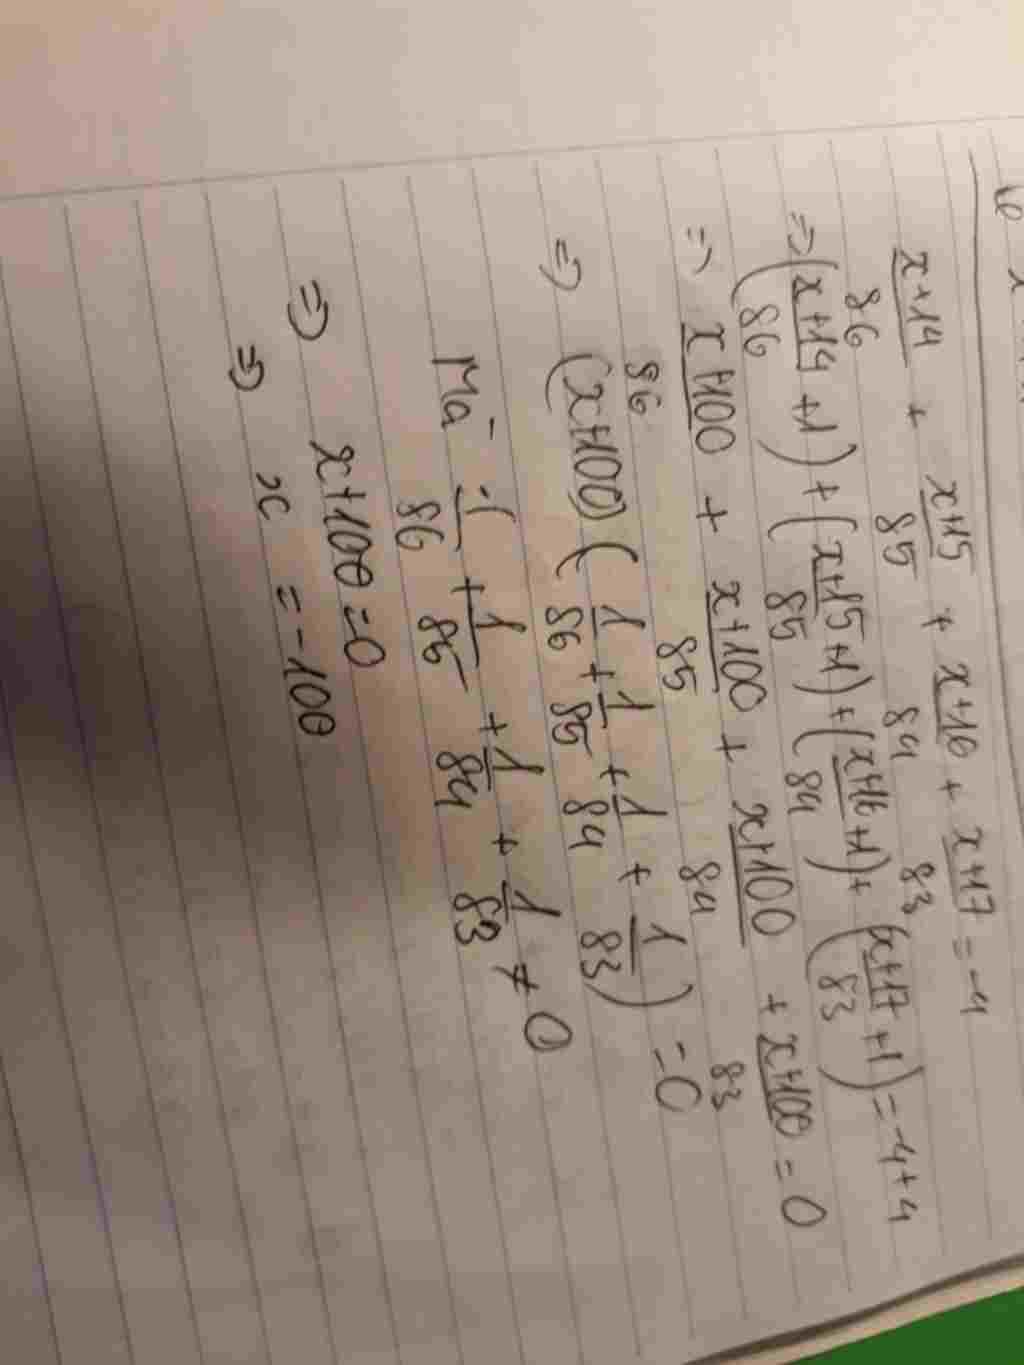 x+14/86 + x+15/85 + x+16/84 + x+17/83 = -4
=> (x+14/86 +1) + (x+15/85 +1) + (x+16/84 +1) + (x+17/83 +1) = -4+4
=> x+100/86 + x+100/85 + x+100/84 + x+100/83 = 0
=> (x+100) (1/86 + 1/85 + 1/84 + 1/83) = 0
Mà 1/86 + 1/85 + 1/84 + 1/83 ≠ 0
=> x+100 = 0
=> x = -100